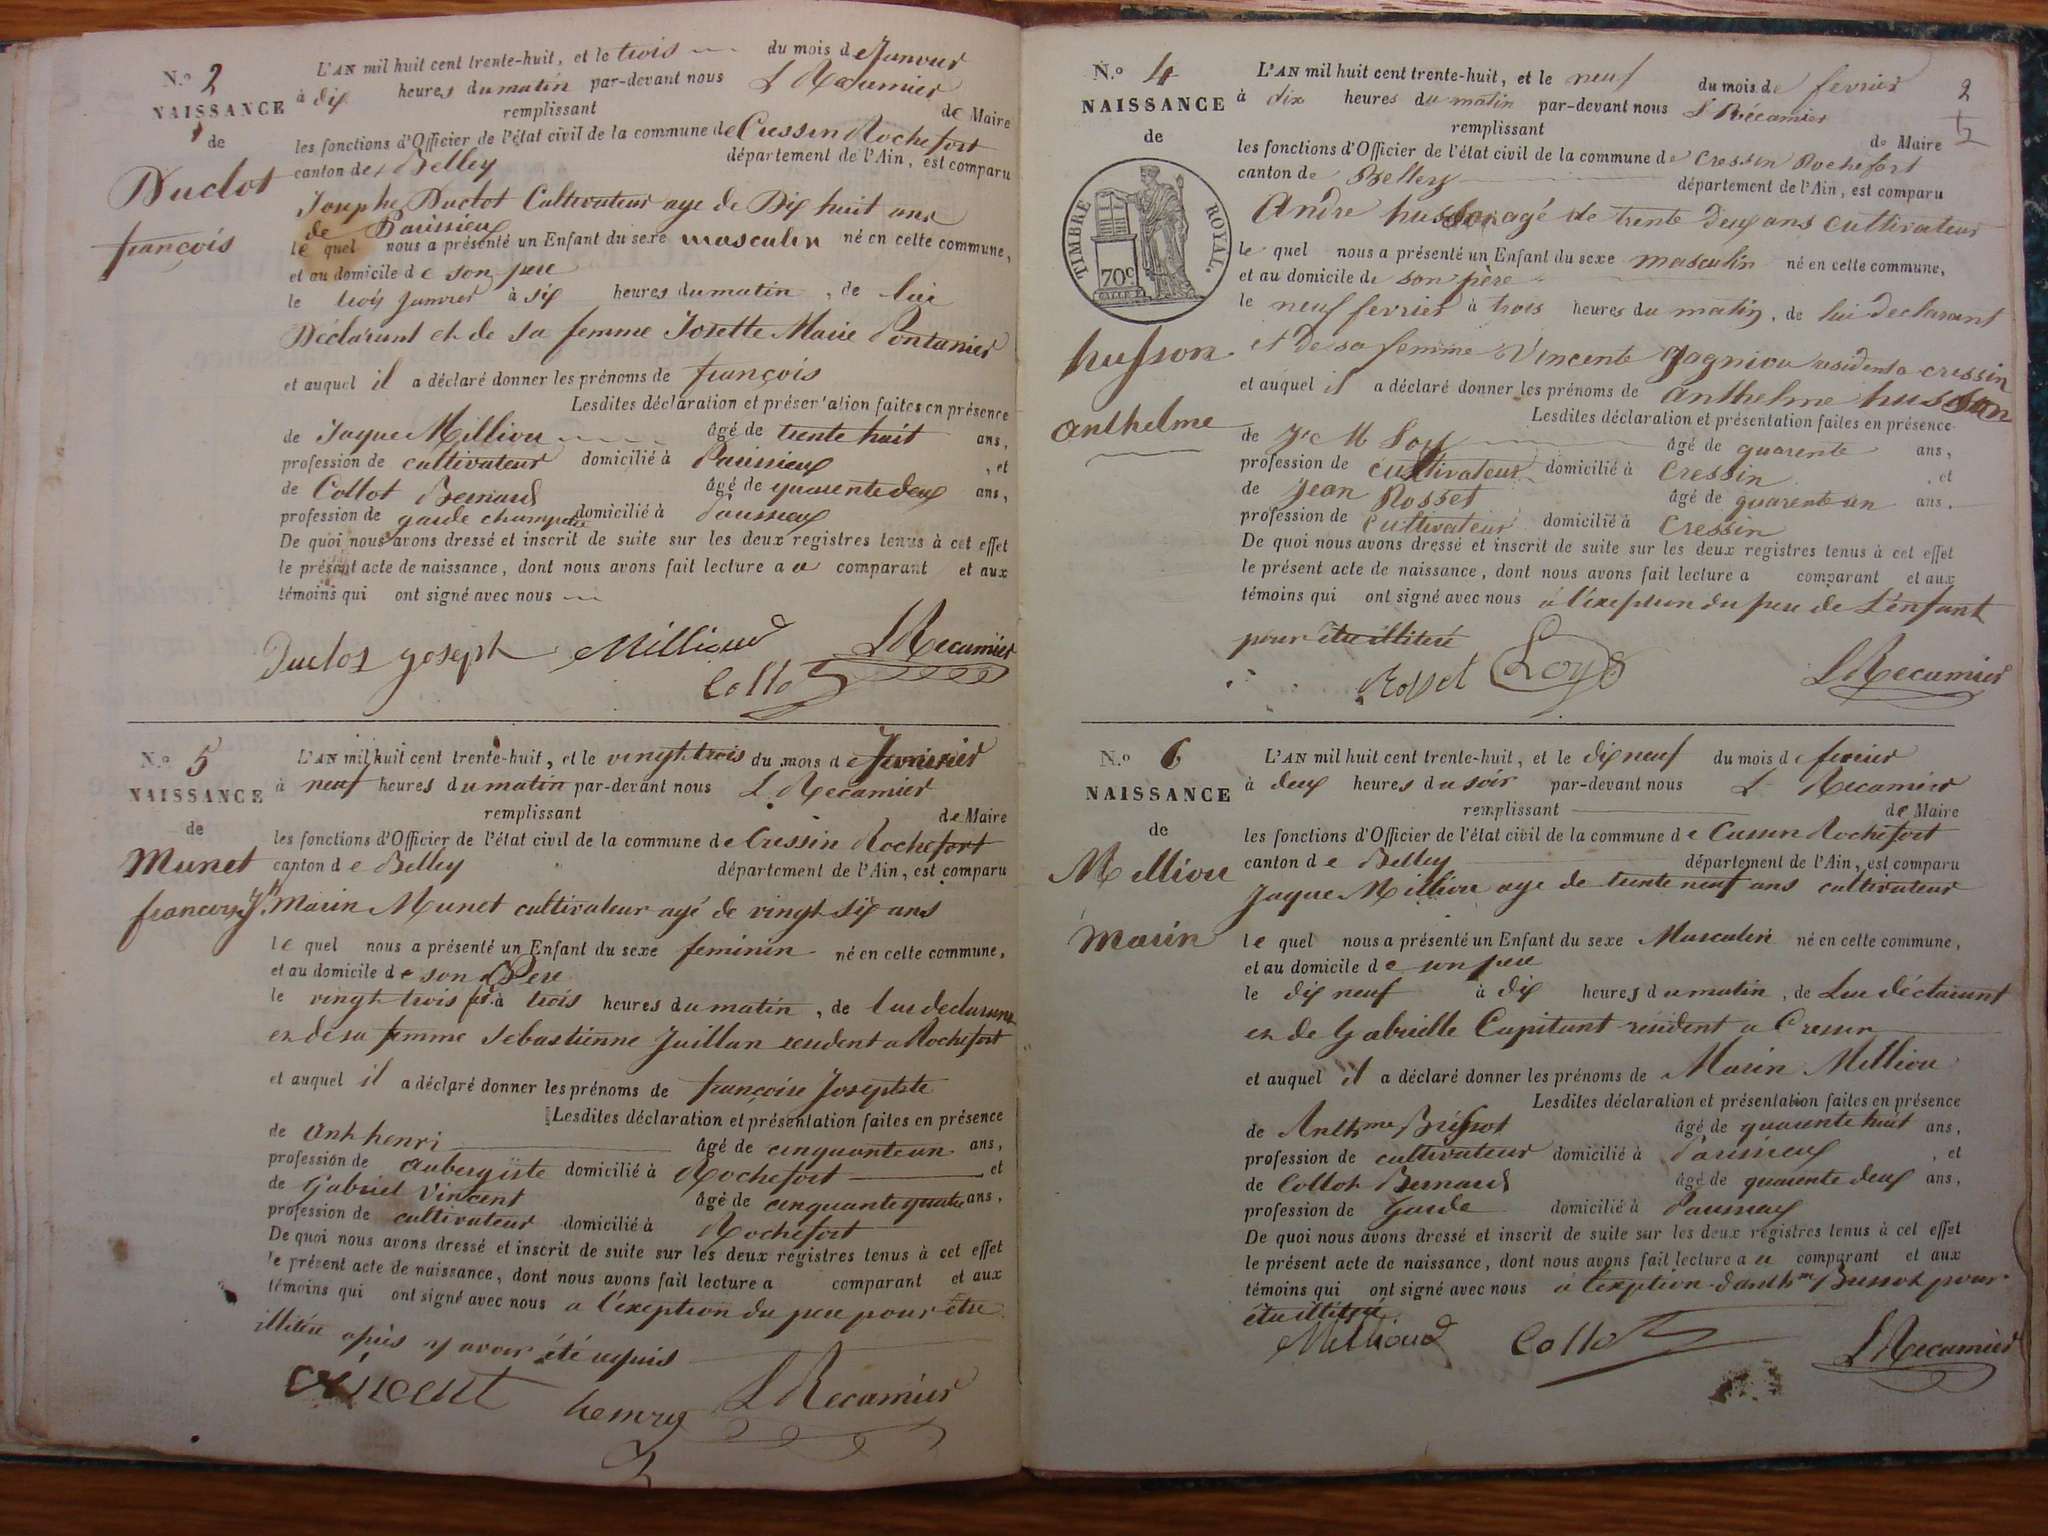 N.o 2
NAISSANCE
de
Duclot
françois
L'AN mil huit cent trente-huit, et le trois du mois de Janvier
à dix heures du matin par-devant nous L Récamier
remplissant de Maire
les fonctions d'Officier de l'état civil de la commune de Cressin Rochefort
canton de Belley département de l'Ain, est comparu
Josephe Duclot Cultivateur age de Dix huit ans
de
le quel nous a présenté un Enfant du sexe masculin né en cette commune,
et au domicile de son pere
le trois Janvier à six heures du matin, de lui
Déclarant et de sa femme Josette Marie Pontanier
et auquel il a déclaré donner les prénoms de françois
Lesdites déclaration et présentation faites en présence
de Jaque Milliou âgé de trente huit ans,
profession de cultivateur domicilié à , et
de Collot Bernard âgé de quarente deux ans,
profession de garde champetre domicilié à
De quoi nous avons dressé et inscrit de suite sur les deux registres tenus à cet effet
le présent acte de naissance, dont nous avons fait lecture a u comparant et aux
témoins qui ont signé avec nous
Duclos joseph Milliaud L Recamier
Collot
N.o 5
NAISSANCE
de
Munet
L'AN mil huit cent trente-huit, et le vingt trois du mois de
à neuf heures du matin par-devant nous L. Recamier
remplissant de Maire
les fonctions d'Officier de l'état civil de la commune de Cressin Rochefort
canton de Belley département de l'Ain, est comparu
Marin Munet cultivateur agé de vingt six ans
le quel nous a présenté un Enfant du sexe feminin né en cette commune,
et au domicile de son Pere
le vingt trois à trois heures du matin, de lui declarant
et de sa femme Sebastienne Juillan resident a Rochefort
et auquel il a déclaré donner les prénoms de françoise Josephte
Lesdites déclaration et présentation faites en présence
de Anth henri âgé de cinquante un ans,
profession de aubergiste domicilié à Rochefort et
de Gabriel Vincent âgé de cinquante quatre ans,
profession de cultivateur domicilié à Rochefort
De quoi nous avons dressé et inscrit de suite sur les deux registres tenus à cet effet
le présent acte de naissance, dont nous avons fait lecture a comparant et aux
témoins qui ont signé avec nous a l'exeption du pere pour être
illitéré après y avoir été requis
vincent henry L Recamier
2
N.o 4
NAISSANCE
de
TIMBRE ROYAL.
70c
husson
anthelme
L'AN mil huit cent trente-huit, et le neuf du mois de fevrier
à dix heures du matin par-devant nous L Récamier
remplissant de Maire
les fonctions d'Officier de l'état civil de la commune de Cressin Rochefort
canton de Belley département de l'Ain, est comparu
André husson agé de trente deux ans cultivateur
le quel nous a présenté un Enfant du sexe masculin né en cette commune,
et au domicile de son père
le neuf fevrier à trois heures du matin, de lui declarant
et de sa femme Vincente resident a cressin
et auquel il a déclaré donner les prénoms de anthelme husson
Lesdites déclaration et présentation faites en présence
de âgé de quarente ans,
profession de cultivateur domicilié à Cressin , et
de Jean Rosset âgé de quarente un ans,
profession de cultivateur domicilié à Cressin
De quoi nous avons dressé et inscrit de suite sur les deux registres tenus à cet effet
le présent acte de naissance, dont nous avons fait lecture a comparant et aux
témoins qui ont signé avec nous à l'exeption du pere de L'enfant
pour être illiteré
Rosset Loys L Recamier
N.o 6
NAISSANCE
de
Milliou
Marin
L'AN mil huit cent trente-huit, et le dix neuf du mois de fevrier
à deux heures du soir par-devant nous L Recamier
remplissant de Maire
les fonctions d'Officier de l'état civil de la commune de Cressin Rochefort
canton de Belley département de l'Ain, est comparu
Jaque Milliou age de trente neuf ans cultivateur
le quel nous a présenté un Enfant du sexe Masculin né en cette commune,
et au domicile de son pere
le dix neuf à dix heures du matin, de Lui déclarant
et de Gabrielle Capitant résident a Cressin
et auquel il a déclaré donner les prénoms de Marin Milliou
Lesdites déclaration et présentation faites en présence
de Anthme Brissot âgé de quarente huit ans,
profession de cultivateur domicilié à , et
de Collot Bernard âgé de quarente deux ans,
profession de Garde domicilié à
De quoi nous avons dressé et inscrit de suite sur les deux registres tenus à cet effet
le présent acte de naissance, dont nous avons fait lecture a u comparant et aux
témoins qui ont signé avec nous à l'exeption d'anthme Brissot pour
être illiteré
Milliaud Collot L Recamier